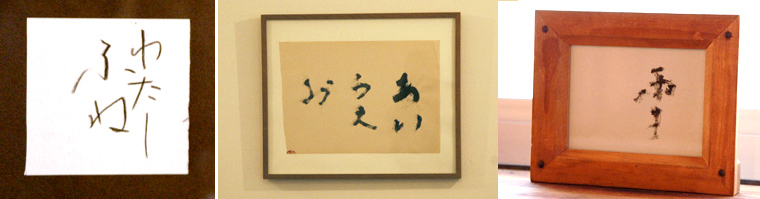 わたし
ふね
あい
うえ
お